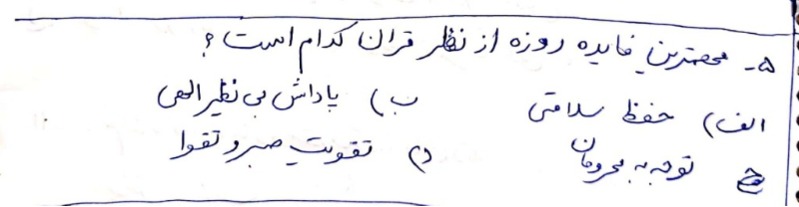 ۵- مهمترین فایده روزه از نظر قران کدام است؟
الف) حفظ سلامتی ب) پاداش بی نظیر الهی
ج) توجه به محرومان د) تقویت صبر و تقوا